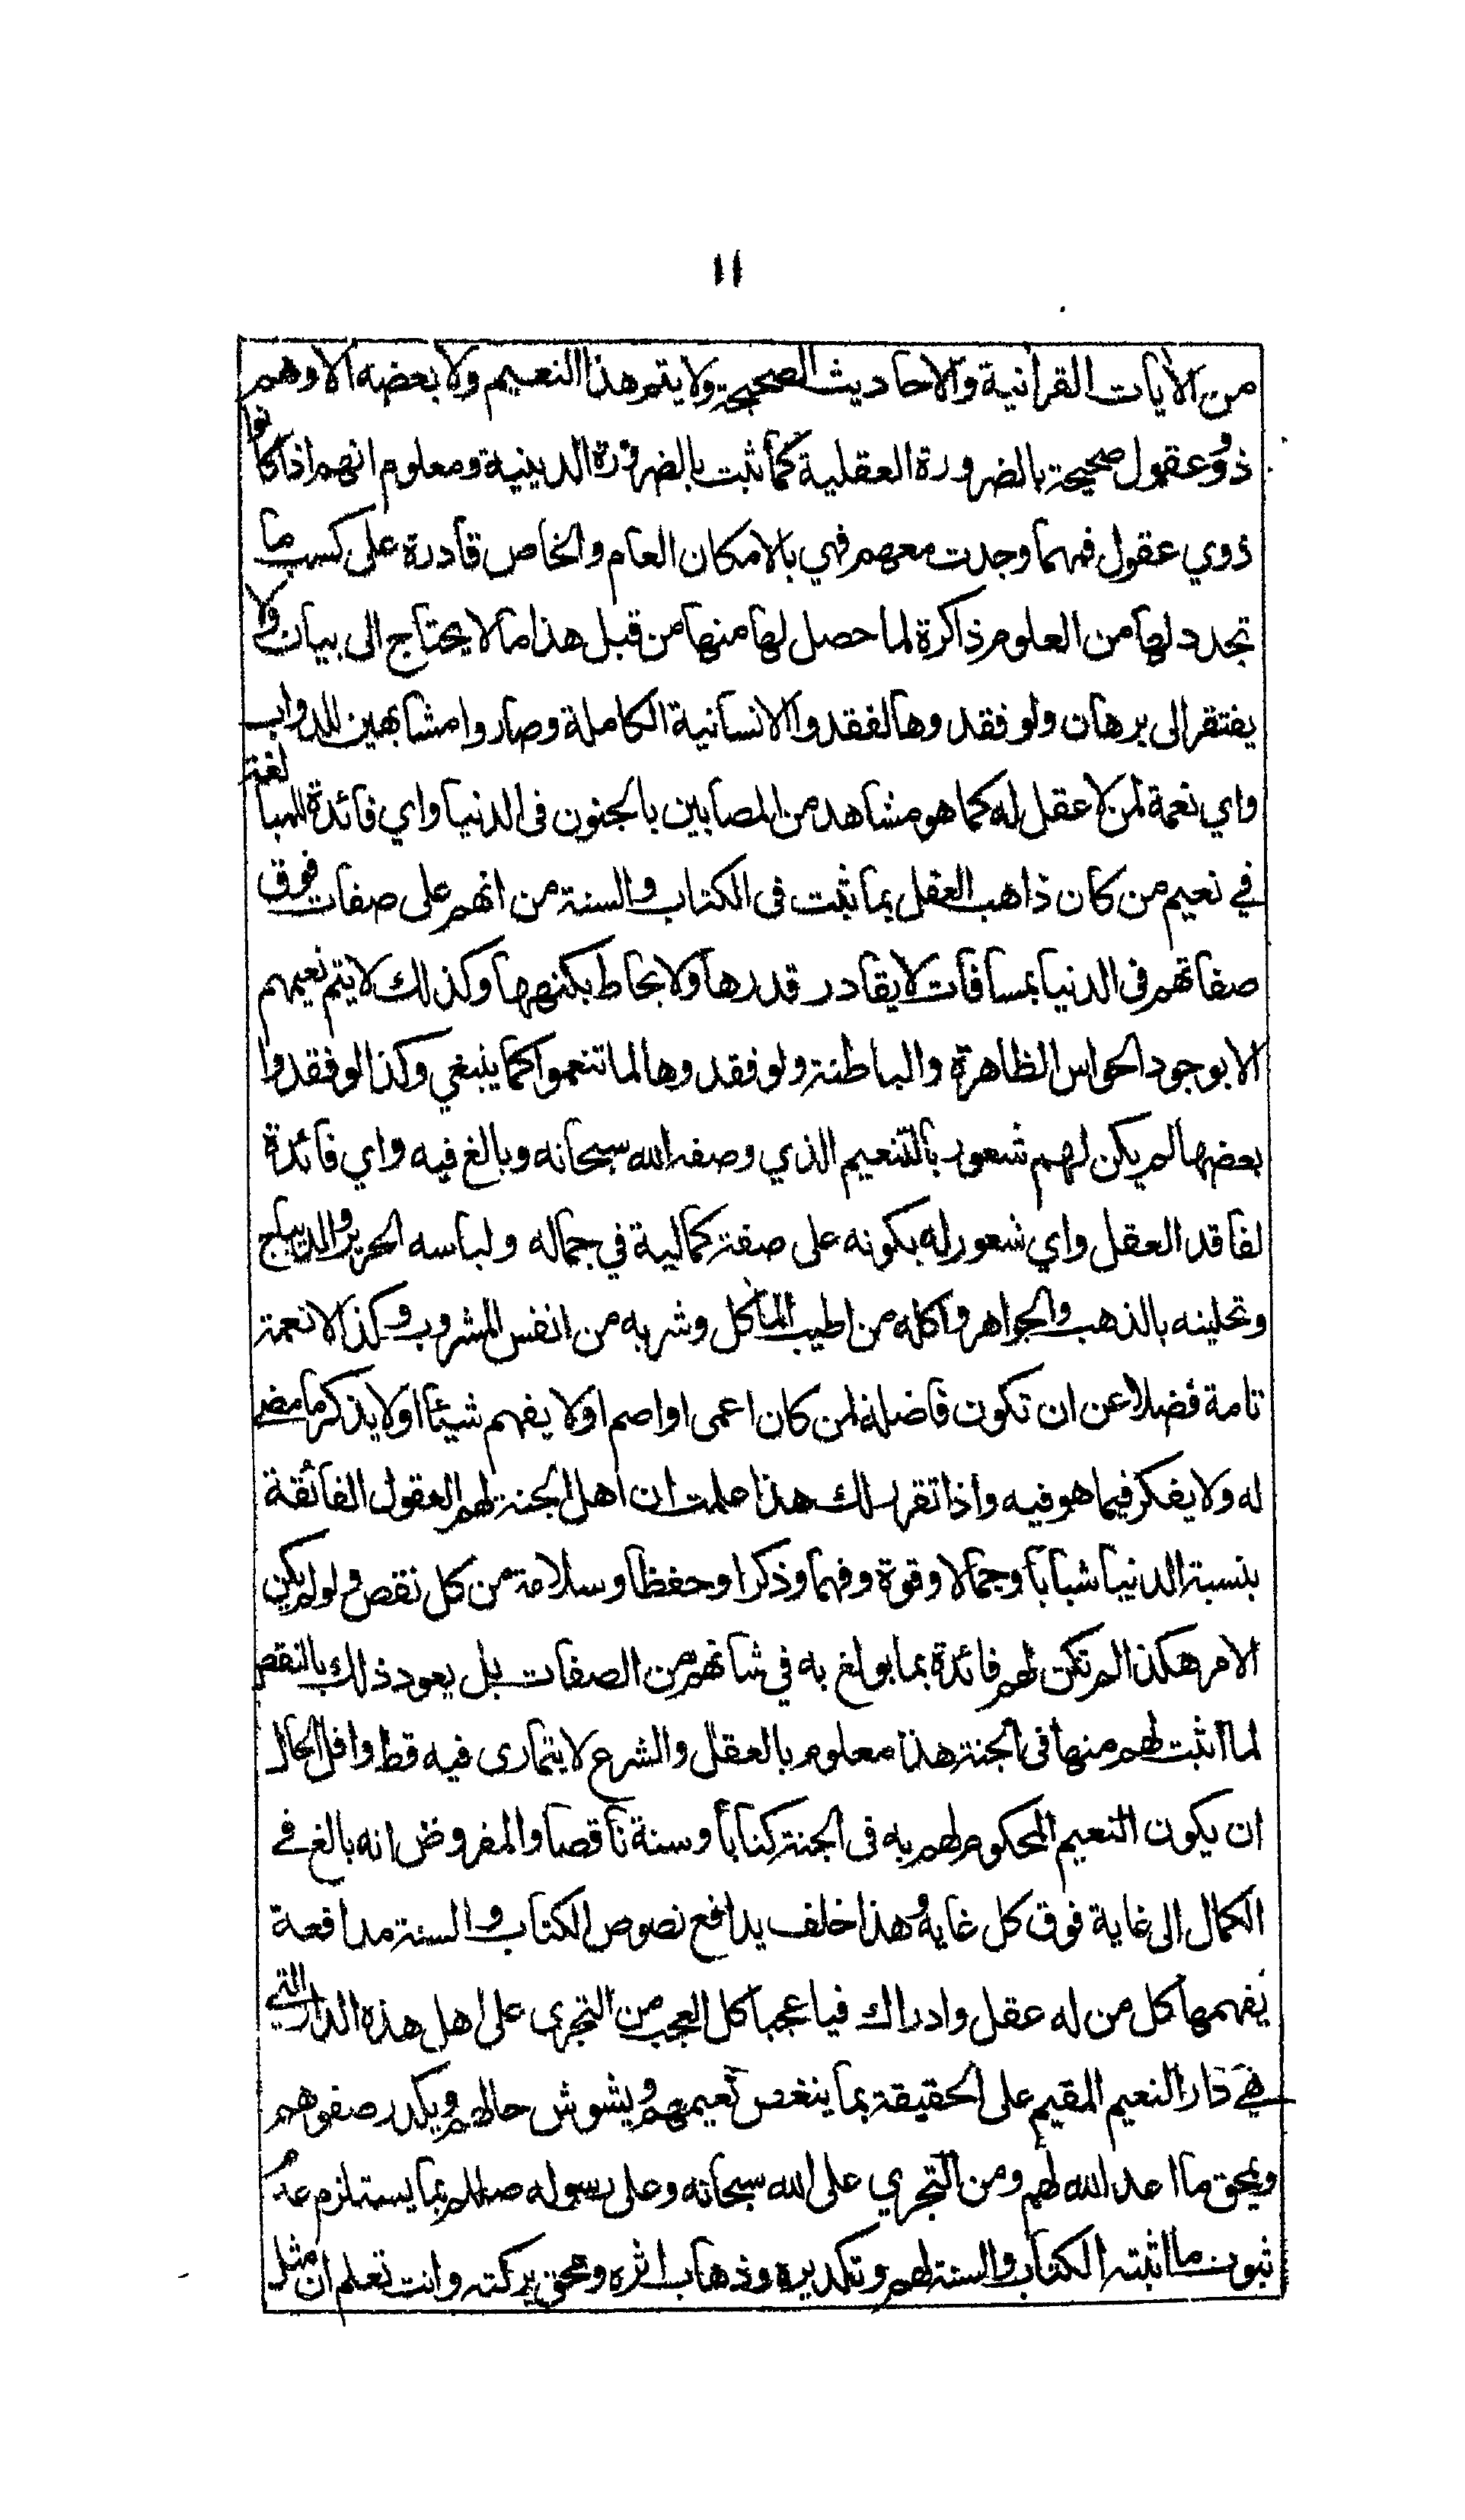 ١١
من الآيات القرانية والاحاديث الصحيحة ولا يتم هذا النعيم ولا بعضه الا وهم
ذوو عقول صحيحة بالضرورة العقلية كما ثبت بالضرورة الدينية ومعلوم انهم اذا كانوا
ذوي عقول فهما وجدت معهم فهي بالامكان العام والخاص قادرة على كسب ما
تجدد لها من العلوم ذاكرة لما حصل لها منها من قبل هذا ما لا يحتاج الى بيان ولا
يفتقر الى برهان ولو فقدوها لفقدوا الانسانية الكاملة وصاروا مشابهين للدواب
واي نعمة لمن لا عقل له كما هو مشاهد من المصابين بالجنون في الدنيا واي فائدة للمبالغة
في نعيم من كان ذاهب العقل بما ثبت في الكتاب والسنة من انهم على صفات فوق
صفاتهم في الدنيا بمسافات لا يقادر قدرها ولا يحاط بكنهها وكذلك لا يتم نعيمهم
الا بوجود الحواس الظاهرة والباطنة ولو فقدوها لما تنعموا كما ينبغي وكذا لو فقدوا
بعضها لم يكن لهم شعور بالتنعيم الذي وصفه الله سبحانه وبالغ فيه واي فائدة
لفاقد العقل واي شعور له بكونه على صفة كمالية في جماله ولباسه الحرير والديباج
وتحلينه بالذهب والجواهر واكله من اطيب المآكل وشربه من انفس المشروب وكذا لا نعمة
تامة فضلا عن ان تكون فاضلة لمن كان اعمى او اصم او لا يفهم شيئا او لا يذكر ما مضى
له ولا يفكر فيما هو فيه واذا تقرر لك هذا علمت ان اهل الجنة لهم العقول الفائقة
بنسبة الدنيا شبابا وجمالا وقوة وفهما وذكرا وحفظا وسلامة من كل نقص ولو لم يكن
الامر هكذا لم تكن لهم فائدة بما بولغ به في شانهم من الصفات بل يعود ذلك بالنقص
لما اثبت لهم منها في الجنة هذا معلوم بالعقل والشرع لا يتمارى فيه قط واقل الحال
ان يكون النعيم المحكوم لهم به في الجنة كتابا وسنة ناقصا والمفروض انه بالغ في
الكمال الى غاية فوق كل غاية وهذا خلف يدافع نصوص الكتاب والسنة مدافعة
يفهمها كل من له عقل وادراك فيا عجبا كل العجب من التجري على اهل هذه الدار التي
هي دار النعيم المقيم على الحقيقة بما ينغص نعيمهم ويشوش حالهم ويكدر صفوهم
ويمحق ما اعد الله لهم ومن التجري على الله سبحانه وعلى رسوله صللم بما يستلزم عدم
ثبوت ما اثبته الكتاب والسنة لهم وتكديره وذهاب اثره ومحق بركته وانت تعلم ان مثل